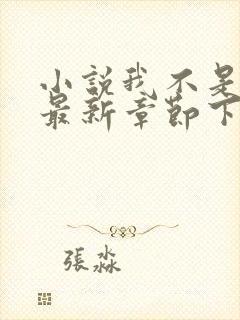 小説我不是
最新章節下
張淼